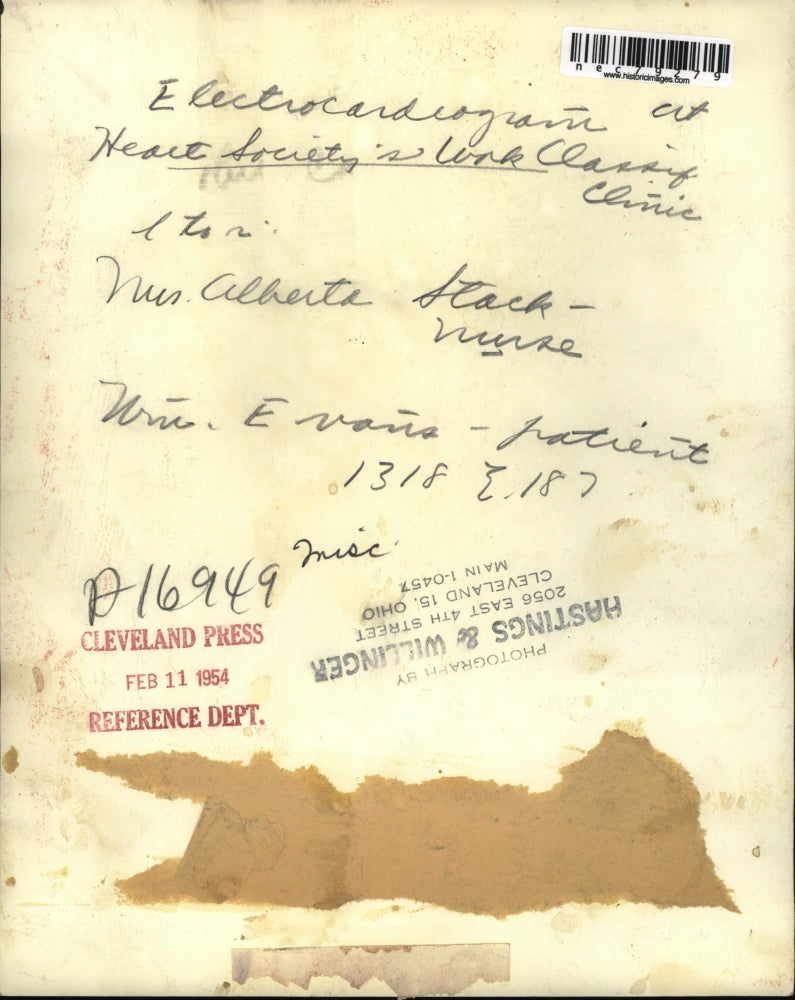 nec79279
www.historicimages.com
Electrocardiogram at
Heart Society's Work Classif
Clinic
l to r:
Mrs. Alberta Stack -
nurse
Wm. Evans - patient
1318 E. 187
misc
16949
CLEVELAND PRESS
FEB 11 1954
REFERENCE DEPT.
PHOTOGRAPH BY
HASTINGS & WILLINGER
2056 EAST 4TH STREET
CLEVELAND 15, OHIO
MAIN 1-0457